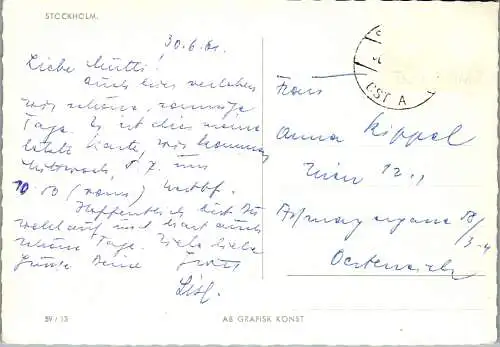 STOCKHOLM.
30.6.61.
Liebe Mutti!
Auch hier verleben
wir schöne, sonnige
Tage. Es ist dies meine
letzte Karte, wir kommen
Mittwoch, 5. 7. um
10
Hoffentlich bist Du
wohlauf und hast auch
schöne Tage. Viele liebe
Grüsse Deine
Lisl.
59/13
AB GRAFISK KONST
ÖST A
Frau
Anna Kippel
Wien 12.,
18/
3-4
Oesterreich